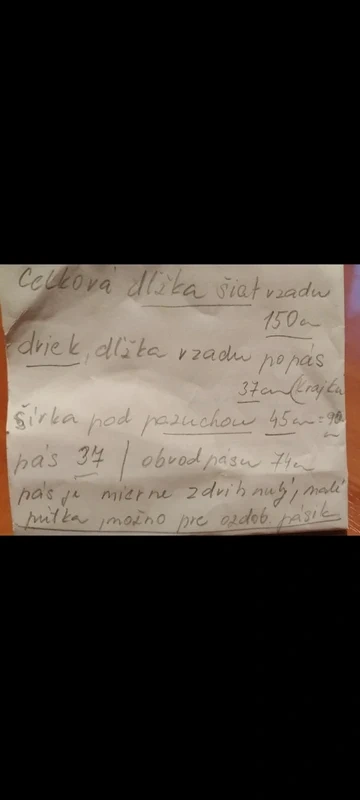 Celková dlžka šiat vzadu
150cm
driek, dlžka vzadu po pás
37cm (krajka
šírka pod pazuchou 45cm = 90
pás 37 | obvod pásu 74cm
pás je mierne zdvihnutý, malé
pútka, možno pre ozdob. pásik